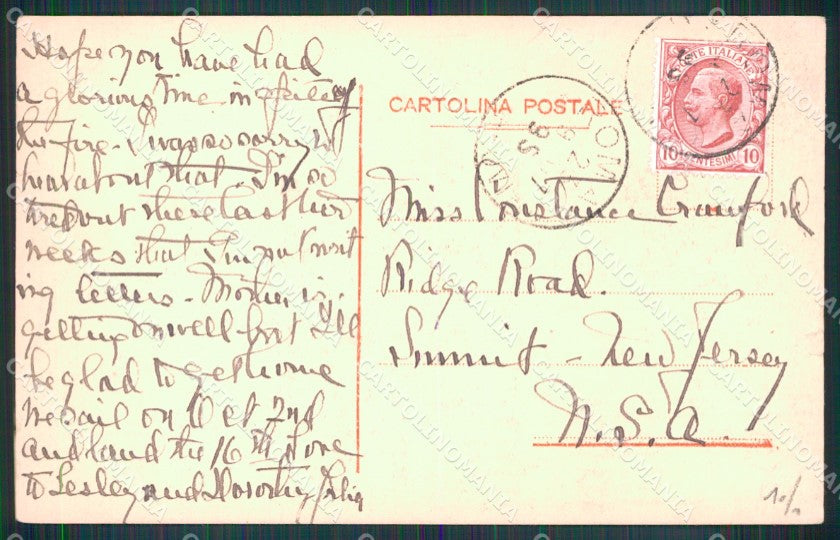 Hope you have had
a glorious time in spite of
the fire. I was so sorry to
hear about that. I'm so
tired out these last two
weeks that I'm putn't writ
ing letters. Mother is
getting on well but I'll
be glad to get home
We sail on Oct 2nd
and land the 16th Love
to Lesley and Dorothy
CARTOLINA POSTALE
POSTE ITALIANE
10 CENTESIMI 10
Miss Constance Crawford
Ridge Road.
Summit - New Jersey
U.S.A.
CARTOLINOMANIA